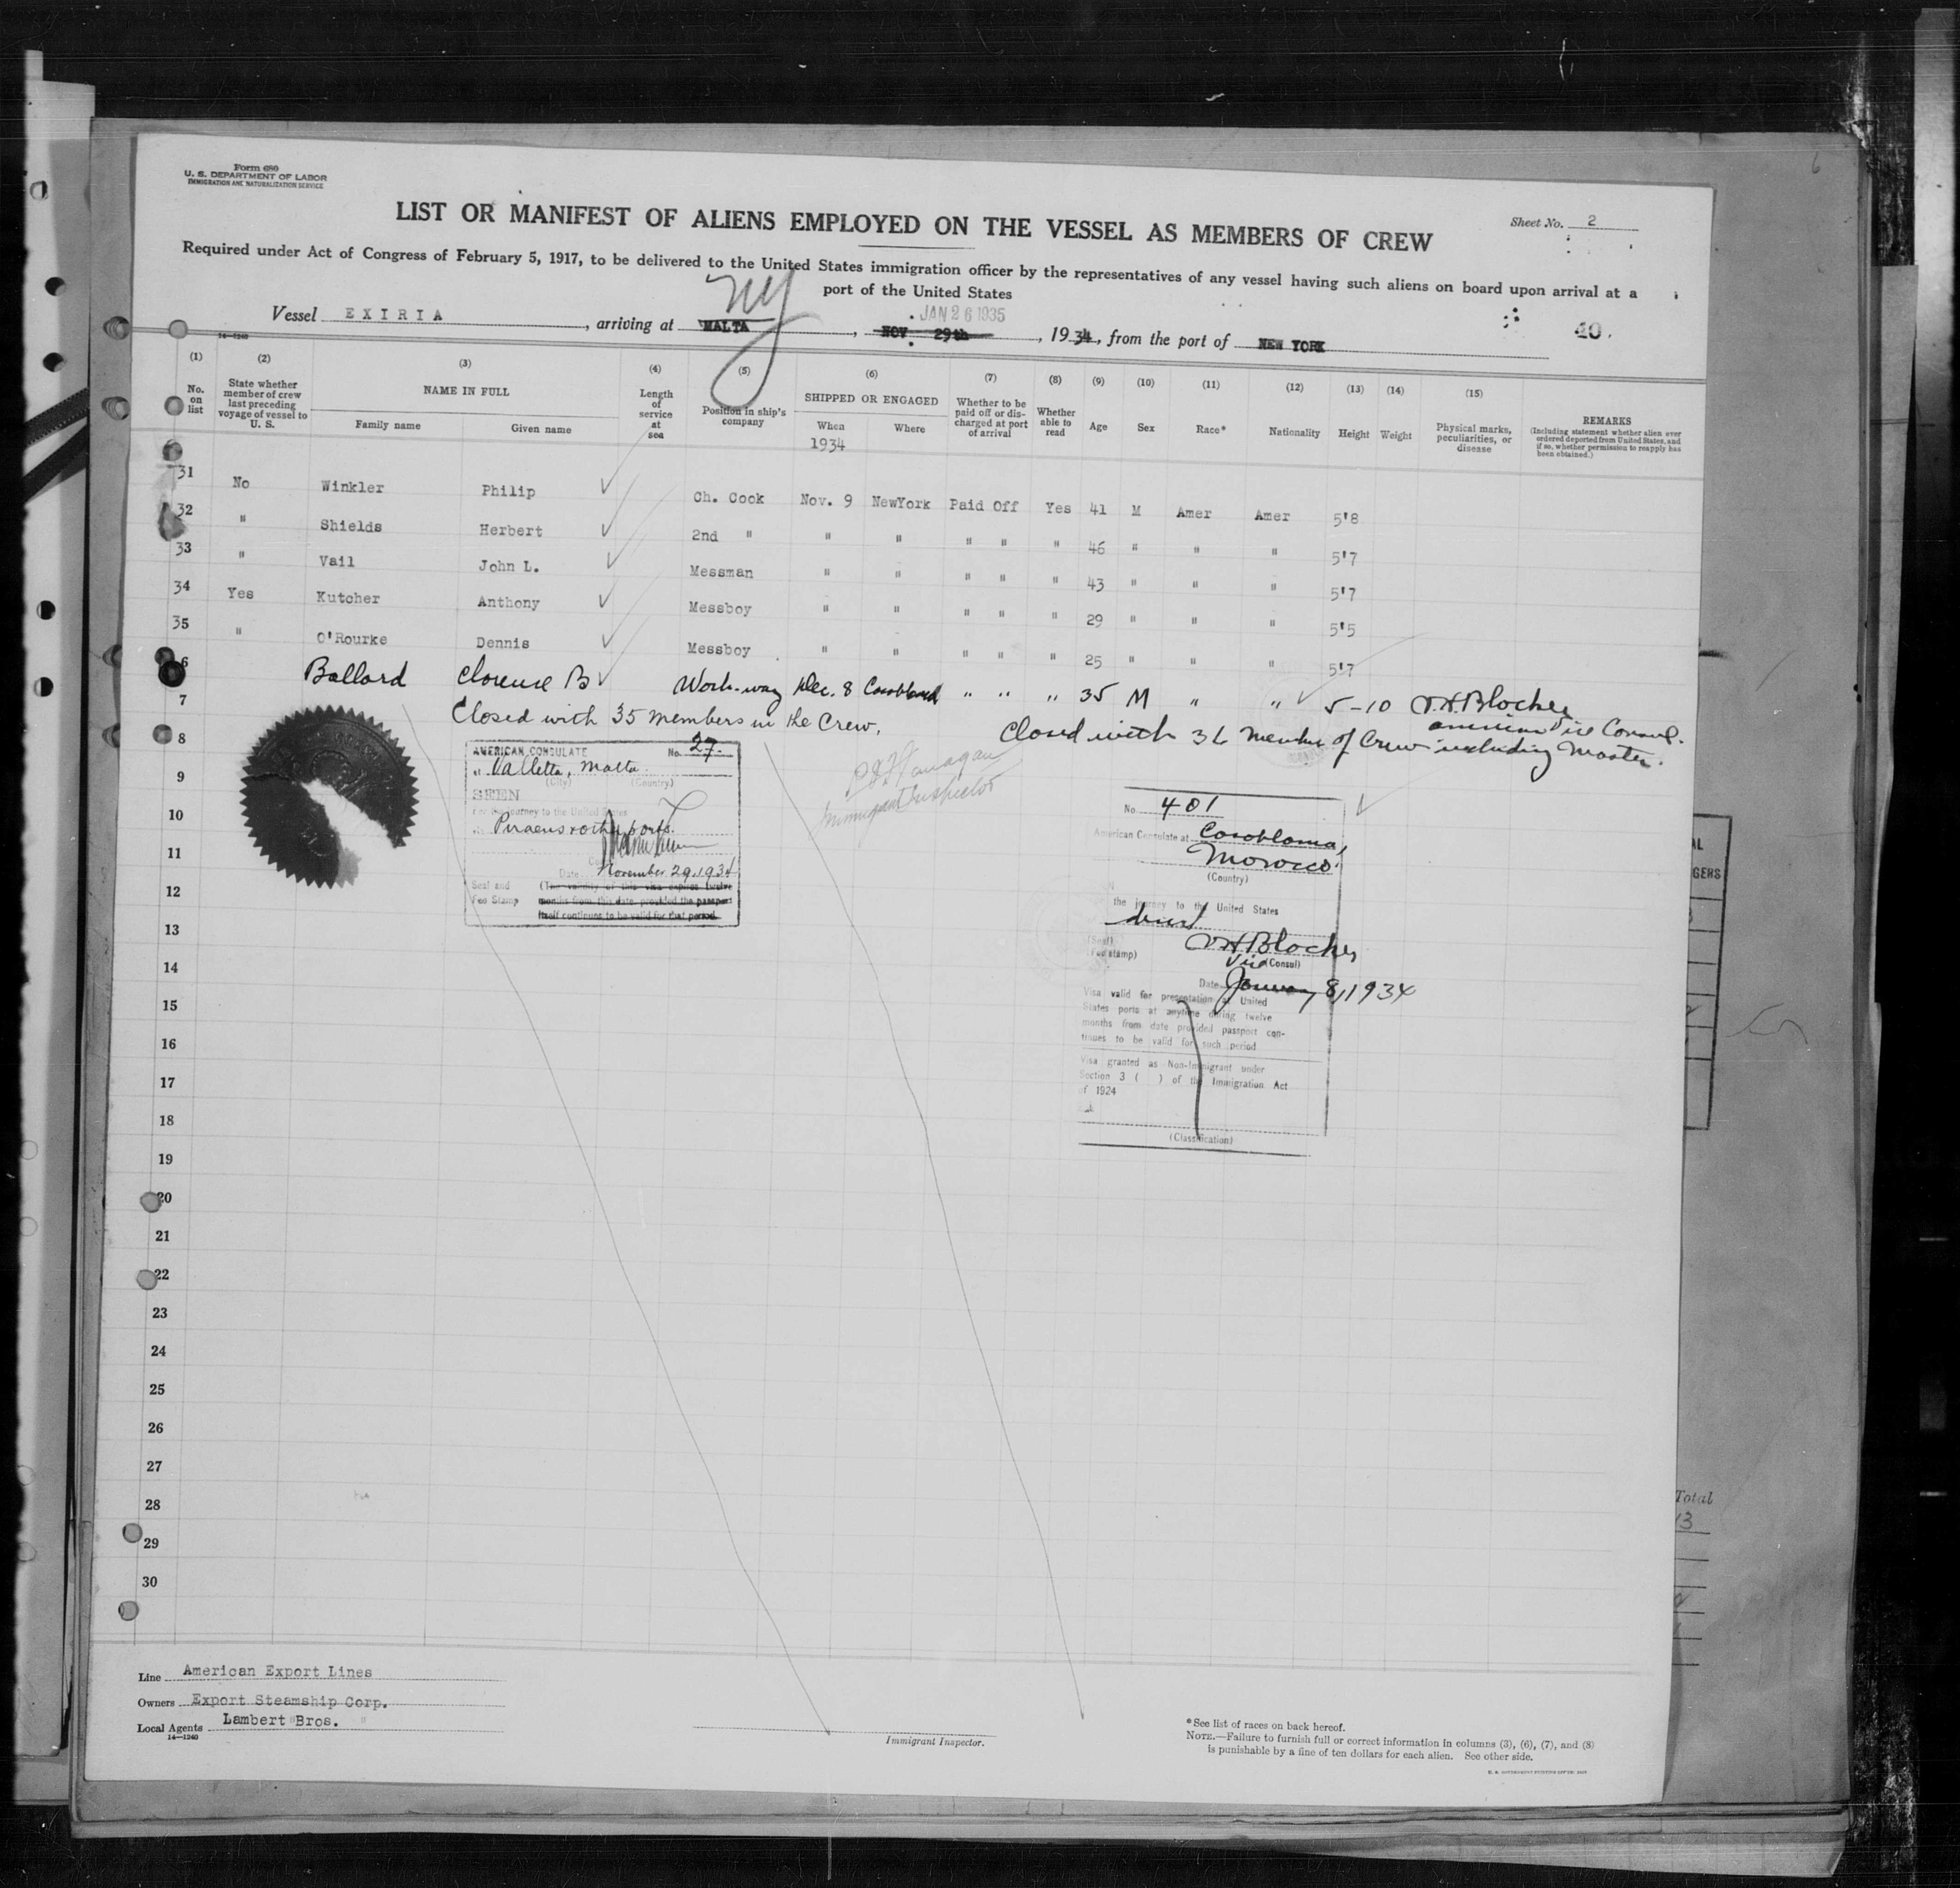 Form 680
U. S. DEPARTMENT OF LABOR
IMMIGRATION AND NATURALIZATION SERVICE
Sheet No. 2
LIST OR MANIFEST OF ALIENS EMPLOYED ON THE VESSEL AS MEMBERS OF CREW
Required under Act of Congress of February 5, 1917, to be delivered to the United States immigration officer by the representatives of any vessel having such aliens on board upon arrival at a
port of the United States
NY
JAN 26 1935
Vessel EXIRIA, arriving at MALTA, NOV. 29th, 1934, from the port of NEW YORK
14—1240
(1) (2) (3) (4) (5) (6) (7) (8) (9) (10) (11) (12) (13) (14) (15)
No. on list
State whether member of crew last preceding voyage of vessel to U. S.
NAME IN FULL
Family name Given name
Length of service at sea
Position in ship's company
SHIPPED OR ENGAGED
When Where
1934
Whether to be paid off or discharged at port of arrival
Whether able to read
Age Sex Race* Nationality Height Weight
Physical marks, peculiarities, or disease
REMARKS
(Including statement whether alien ever ordered deported from United States, and if so, whether permission to reapply has been obtained.)
31 No Winkler Philip ✓ Ch. Cook Nov. 9 NewYork Paid Off Yes 41 M Amer Amer 5'8
32 " Shields Herbert ✓ 2nd " " " " " " 46 " " " 5'7
33 " Vail John L. ✓ Messman " " " " " 43 " " " 5'7
34 Yes Kutcher Anthony ✓ Messboy " " " " " 29 " " " 5'5
35 " O'Rourke Dennis ✓ Messboy " " " " " 25 " " " 5'7
6 Ballard Clarence B ✓ Work-way Dec. 8 Casablanca " " " 35 M " " ✓ 5-10 V.H.Blocker
American Vice Consul.
7 Closed with 35 members in the Crew.
Closed with 36 members of Crew including Master.
AMERICAN CONSULATE No. 27.
at Valletta, Malta.
(City) (Country)
SEEN
For the journey to the United States
via Piraeus & other ports.
Date November 29, 1934
Seal and Fee Stamp
(The validity of this visa expires twelve
months from this date provided the passport
itself continues to be valid for that period.
Immigrant Inspector
No. 401
American Consulate at Casablanca,
Morocco.
(Country)
the journey to the United States
direct
(Seal)
(Fee stamp)
V.H.Blocker
Vice (Consul)
Date January 8, 1934
Visa valid for presentation at United
States ports at anytime during twelve
months from date provided passport con-
tinues to be valid for such period
Visa granted as Non-Immigrant under
Section 3 ( ) of the Immigration Act
of 1924
(Classification)
8
9
10
11
12
13
14
15
16
17
18
19
20
21
22
23
24
25
26
27
28
29
30
Line American Export Lines
Owners Export Steamship Corp.
Local Agents Lambert Bros.
14—1240
Immigrant Inspector.
*See list of races on back hereof.
NOTE.—Failure to furnish full or correct information in columns (3), (6), (7), and (8)
is punishable by a fine of ten dollars for each alien. See other side.
Total